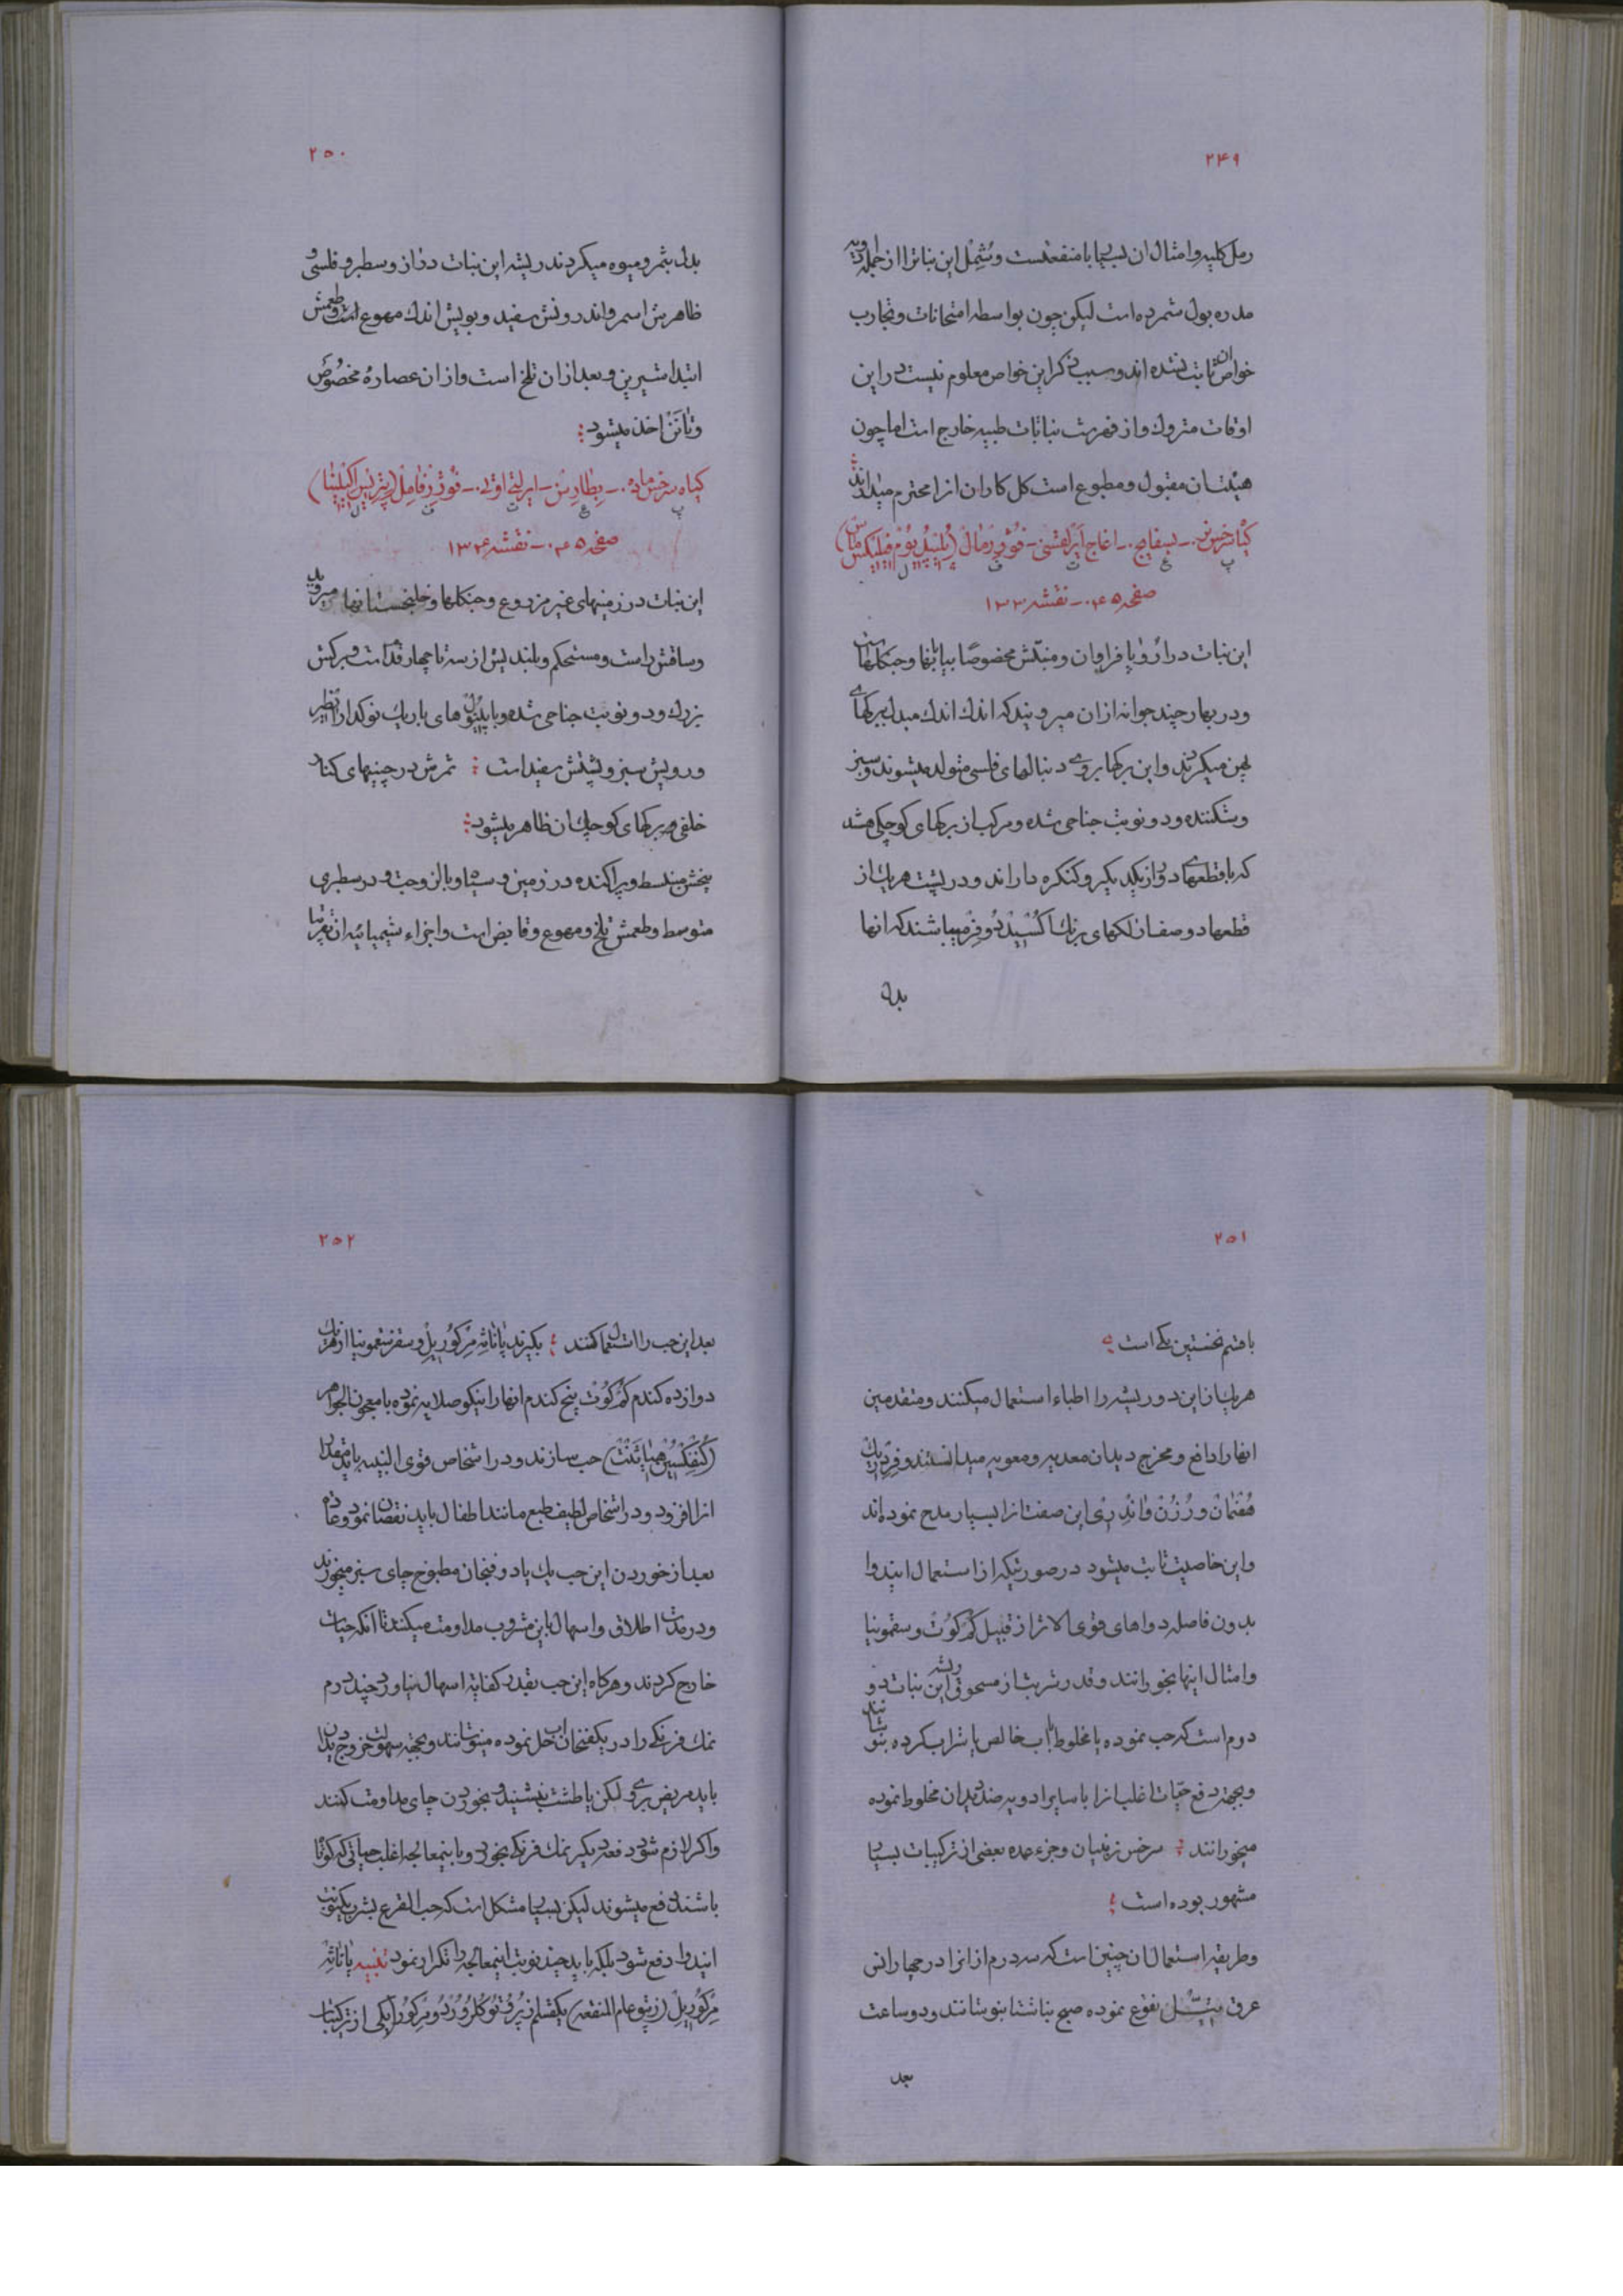 ۲۴۹
رمل کلیه و امثال ان بسیار با منفعتست و شمل این نباترا از جمله ادویه
مدره بول شمرده است لیکن چون بواسطه امتحانات و تجارب
خواص ان ثابت نشده اند و سبب ذکر این خواص معلوم نیست در این
اوقات متروك و از فهرست نباتات طبیه خارج است اما چون
هیئتان مقبول و مطبوع است کل کاران انرا محترم میدانند
کیاه سرخس نر - بسفایج - اغاج - فوژر مال
صفحه ۴۵ - نقشه ۱۳۳
این نبات در اروپا فراوان و منبتش مخصوصًا بیابانها و جنکلهاست
و در بهار چند جوانه از ان میروید که اندك اندك مبدل ببرکهای
پهن میکردند و این برکها بروی دنبالهای فلسی متولد میشوند و سبز
و شکننده و دو نوبت جناحی شده و مرکب از برکهای کوچکی هستند
که با قطعهای دور از یکدیکر و کنکره دار اند و در پشت هر یك از
قطعها دو صف از لکهای برنك اکسید دو فر میباشند که انها
بدل
۲۵۰
بدل بثمر و میوه میکردند ریشه این نبات دراز و سطبر و فلسی و
ظاهرش اسمر و اندرونش سفید و بویش اندك مهوع است و طعمش
ابتدا شیرین و بعد از ان تلخ است و از ان عصاره مخصوص
و تانن اخذ میشود
کیاه سرخس ماده - بطارس - ایرلتی اوتی - فوژر فامل
صفحه ۴۵ - نقشه ۱۳۴
این نبات در زمینهای غیر مزروع و جنکلها و خلنجستانها میروید
و ساقش راست و مستحکم و بلندیش از سه تا چهار قدم است و برکش
بزرك و دو نوبت جناحی شده و با پینول های باریك نوکدار
و رویش سبز و پشتش سفید است ثمرش در چینهای کنار
خلفی برکهای کوچك ان ظاهر میشود
بیخش منبسط و پراکنده در زمین و سیاه و با لزوجت و در سطبری
متوسط و طعمش تلخ و مهوع و قابض است و اجزاء شیمیائیه ان تقریبا
۲۵۱
با قسم نخستین یکی است
هر یك از این دو ریشه را اطباء استعمال میکنند و متقدمین
انها را دافع و مخرج دیدان معدیه و معویه میدانستند و فردریك
هفمان و رزن واندری این صفت انرا بسیار مدح نموده اند
و این خاصیت ثابت میشود در صورتیکه از استعمال ایندوا
بدون فاصله دواهای قوی الاثر از قبیل کم کوت و سقمونیا
و امثال اینها بخورانند و قدر شربت از مسحوق ریشه این نبات دو
درم است که حب نموده یا مخلوط باب خالص یا شراب کرده بنوشانند
و بجهة دفع حیات اغلب انرا با سایر ادویه ضد دیدان مخلوط نموده
میخورانند سرخس نر بنیان و جزء عمده بعضی از ترکیبات بسیار
مشهور بوده است
و طریقه استعمال ان چنین است که سه درم از انرا در چهار انس
عرق نقوع نموده صبح بناشتا بنوشانند و دو ساعت
بعد
۲۵۲
بعد این حب را استعمال کنند بکیرند پاناثه مرکوریل و سقمونیا از هریك
دوازده کندم کم کوت پنج کندم انها را نیکو صلایه نموده با معجون الجواهر
حب سازند و در اشخاص قوی البنیه باید مقدار
انرا افزود و در اشخاص لطیف طبع مانند اطفال باید نقصان نمود و عادة
بعد از خوردن این حب یك یا دو فنجان مطبوخ چای سبز میخورند
و در مدت اطلاق و اسهال باین مشروب مداومت میکنند تا انکه حیات
خارج کردند و هرکاه این حب بقدر کفایة اسهال نیاورد چند درم
نمك فرنکی را در یکفنجان اب حل نموده مینوشانند و بجهة سهولت خروج دیدان
باید مریض بروی لکن یا طشت بنشیند و بخوردن چای مداومت کنند
و اکر لازم شود دفعه دیکر نمك فرنکی بخورد و با اینمعالجه اغلب حیاتی که کوتاه
باشند دفع میشوند لیکن بسیار مشکل است که حب القرع بشرب یکنوبت
ایندوا دفع شود بلکه باید چند نوبت اینمعالجه را تکرار نمود تنبیه پاناثه
مرکوریل (زیبق عام المنفعه) یکقسم از پروتوکلورور دو مرکور و یکی از ترکیبات